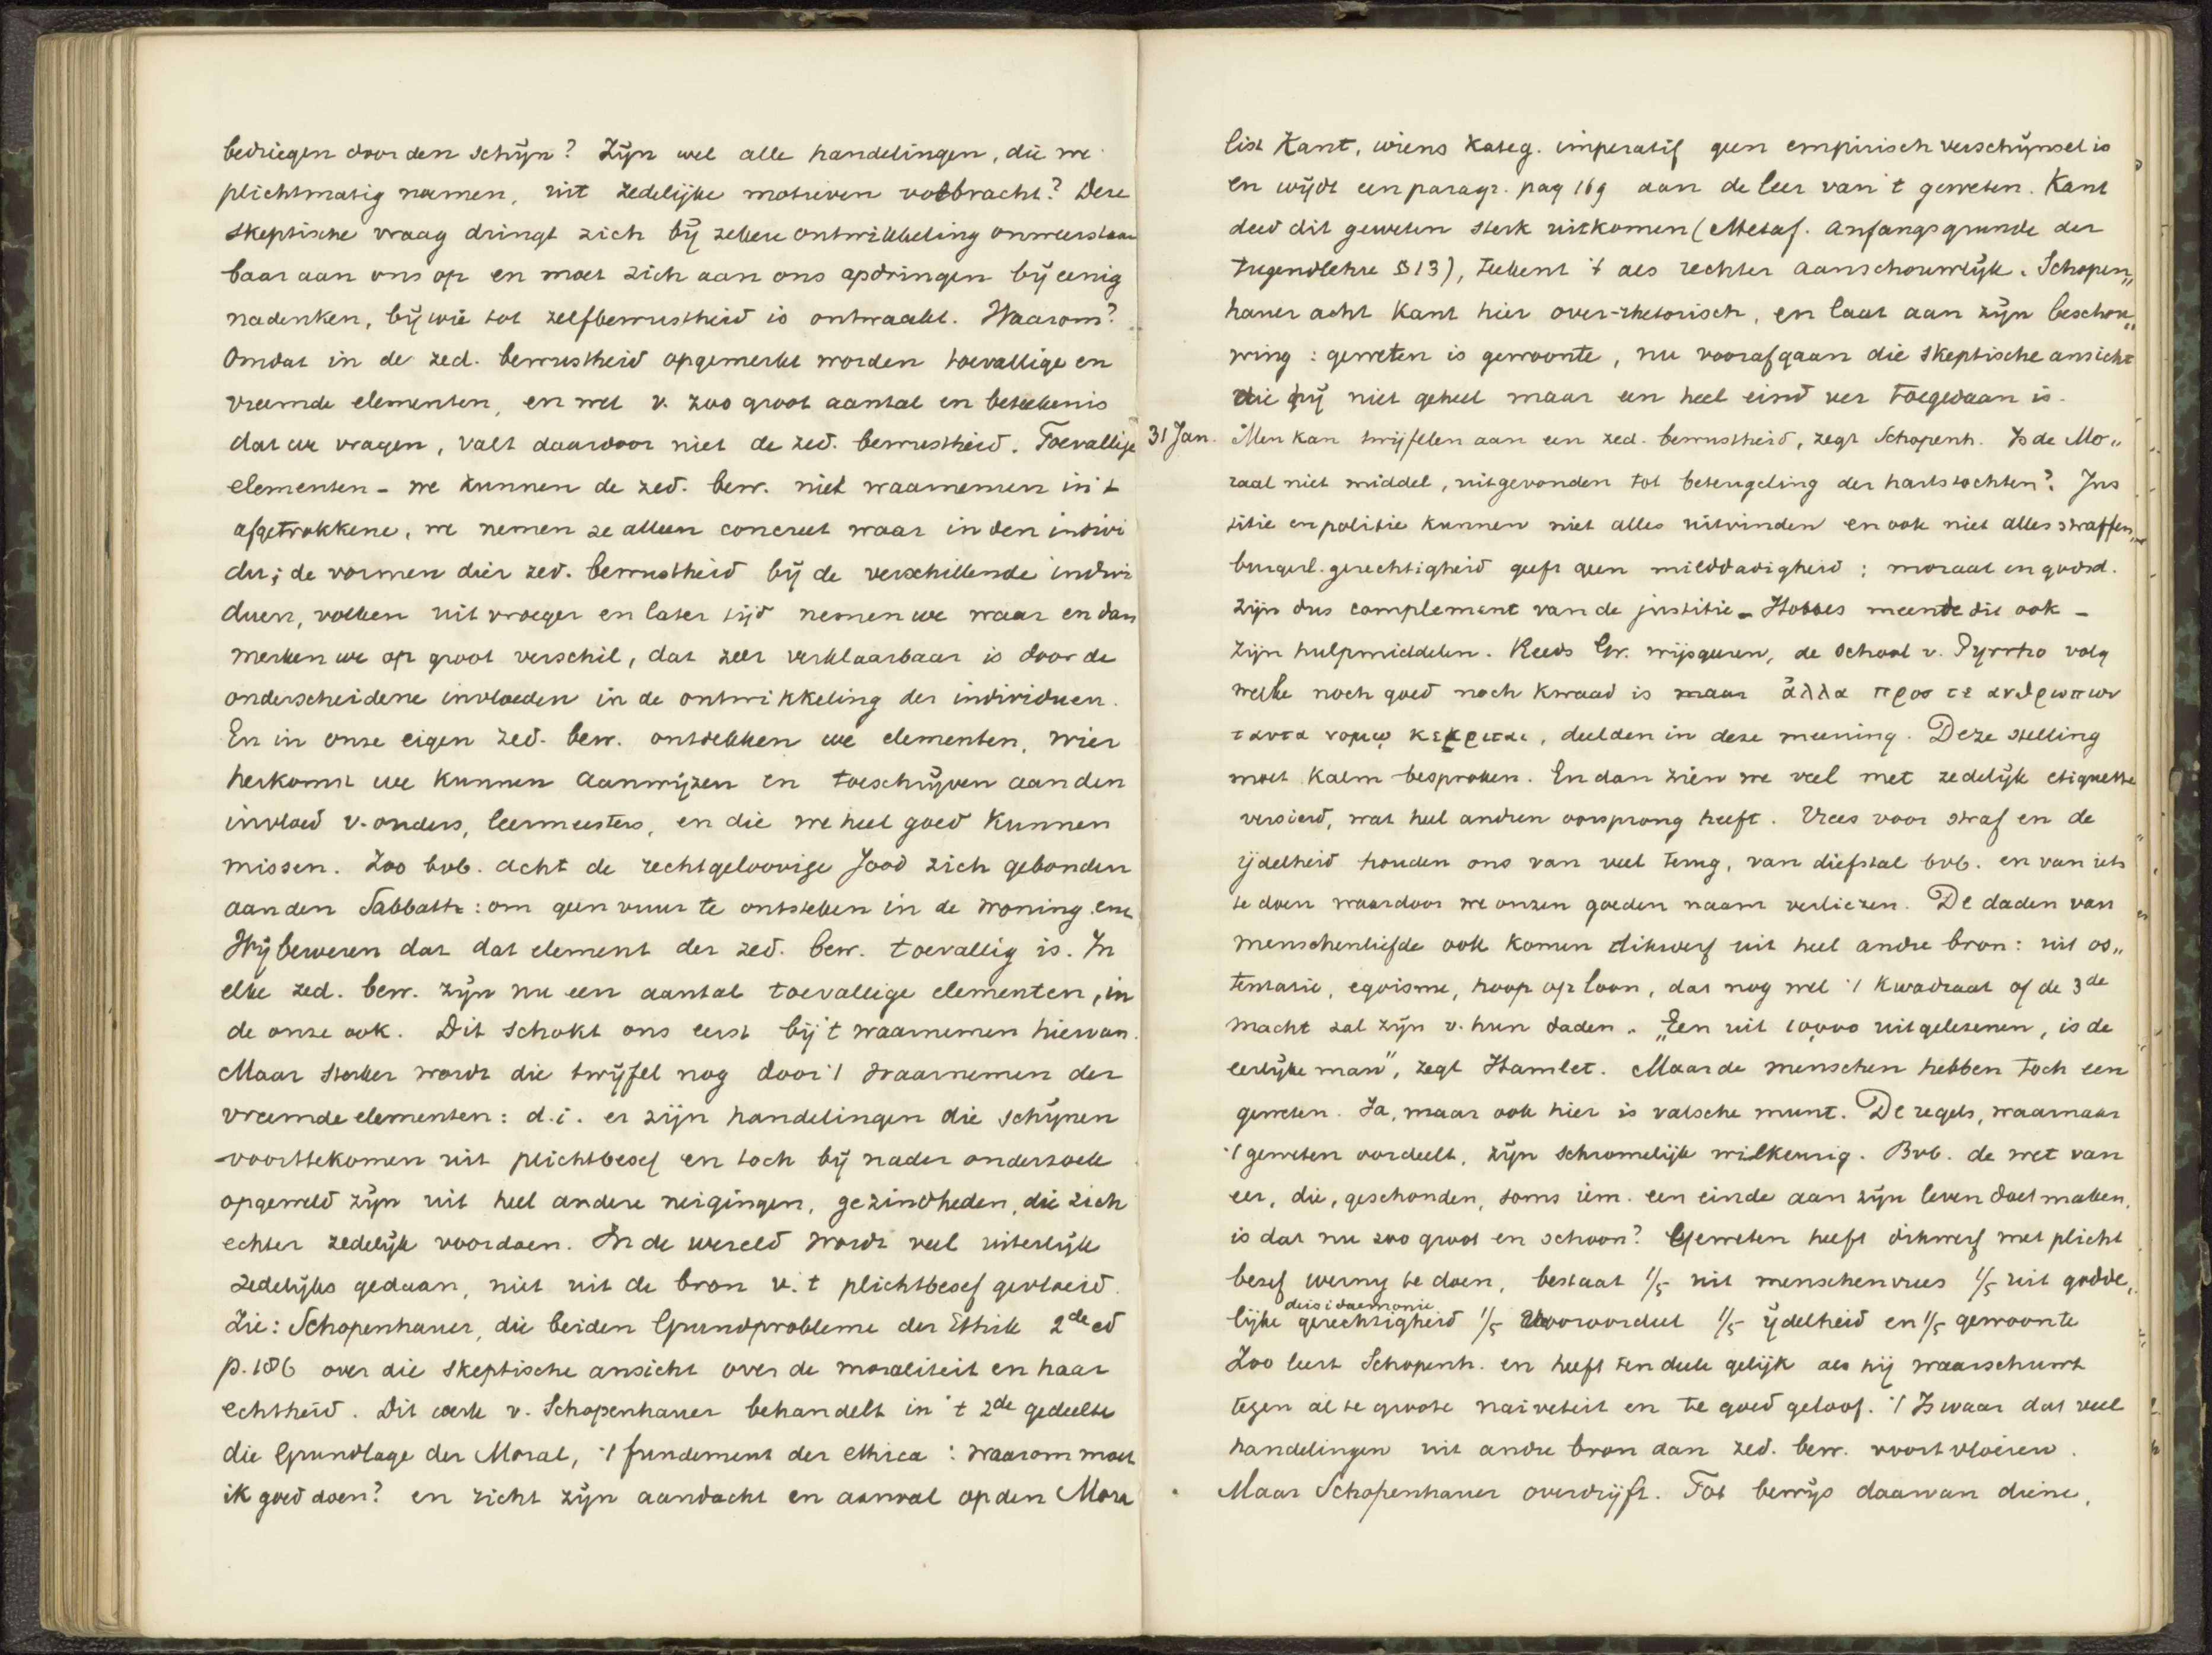 bedriegen door den schijn? Zijn wel alle handelingen, die we
plichtmatig noemen, uit zedelijke motieven volbracht? Deze
skeptische vraag dringt zich bij zekere ontwikkeling onweerstaan
baar aan ons op en moet zich aan ons opdringen bij eenig
nadenken, bij wie tot zelfbewustheid is ontwaakt. Waarom?
Omdat in de zed. bewustheid opgemerkt worden toevallige en
vreemde elementen, en wel v. zoo groot aantal en beteekenis
dat we vragen, valt daardoor niet de zed. bewustheid. Toevallige
elementen - we kunnen de zed. bew. niet waarnemen in 't
afgetrokkene, we nemen ze alleen concreet waar in den indivi
du; de vormen dier zed. bewustheid bij de verschillende indivi
duen, volken uit vroeger en later tijd nemen we waar en dan
merken we op groot verschil, dat zeer verklaarbaar is door de
onderscheidene invloeden in de ontwikkeling der individuen.
En in onze eigen zed. bew. ontdekken we elementen, wier
herkomst we kunnen aanwijzen en toeschrijven aan den
invloed v. ouders, leermeesters, en die we heel goed kunnen
missen. Zoo bvb. acht de rechtgeloovige Jood zich gebonden
aan den Sabbath: om geen vuur te ontsteken in de woning enz
Wij beweren dat dat element der zed. bew. toevallig is. In
elke zed. bew. zijn nu een aantal toevallige elementen, in
de onze ook. Dit schokt ons eerst bij 't waarnemen hiervan.
Maar sterker wordt die twijfel nog door 't waarnemen der
vreemde elementen: d.i. er zijn handelingen die schijnen
voorttekomen uit plichtbesef en toch bij nader onderzoek
opgeweld zijn uit heel andere neigingen, gezindheden, die zich
echter zedelijk voordoen. In de wereld wordt veel uiterlijk
zedelijks gedaan, niet uit de bron v. 't plichtbesef gevloeid.
Zie: Schopenhauer, die beiden Grundprobleme der Ethik 2de ed
p. 186 over die skeptische ansicht over de moraliteit en haar
echtheid. Dit werk v. Schopenhauer behandelt in 't 2de gedeelte
die Grundlage der Moral, 't fundement der ethica: waarom moet
ik goed doen? en richt zijn aandacht en aanval op den Mora
list Kant, wiens kateg. imperatif geen empirisch verschijnsel is
en wijdt een paragr. pag 169 aan de leer van 't geweten. Kant
deed dit geweten sterk uitkomen (Metaf. Anfangsgrunde der
Tugendlehre § 13), teekent 't als rechter aanschouwlijk. Schopen„
hauer acht Kant hier over-rhetorisch, en laat aan zijn beschou„
wing: geweten is gewoonte, nu voorafgaan die skeptische ansicht
die hij niet geheel maar een heel eind ver toegedaan is.
31 Jan. Men kan twijfelen aan een zed. bewustheid, zegt Schopenh. Is de Mo„
raal niet middel, uitgevonden tot beteugeling der hartstochten? Jus
titie en politie kunnen niet alles uitvinden en ook niet alles straffen„
burgerl. gerechtigheid geeft geen milddadigheid; moraal en godsd.
zijn dus complement van de justitie - Hobbes meende die ook -
zijn hulpmiddelen. Reeds Gr. wijsgeeren, de school v. Pyrrho volg
welke noch goed noch kwaad is maar ἀλλα προσ τε ανθρωπων
ταυτα νομῳ κεκριται, deelden in deze meening. Deze stelling
moet kalm besproken. En dan zien we veel met zedelijk etiquette
versierd, wat heel andren oorsprong heeft. Vrees voor straf en de
ijdelheid houden ons van veel terug, van diefstal bvb. en van iets
te doen waardoor we onzen goeden naam verliezen. De daden van
menschenliefde ook komen dikwerf uit heel andre bron: uit os„
tentatie, egoisme, hoop op loon, dat nog wel 't kwadraat of de 3de
macht zal zijn v. hun daden. „Een uit 10,000 uitgelezenen, is de
eerlijke man", zegt Hamlet. Maar de menschen hebben toch een
geweten. Ja, maar ook hier is valsche munt. De regels, waarnaar
't geweten oordeelt, zijn schromelijk wilkeurig. Bvb. de wet van
eer, die, geschonden, soms iem. een einde aan zijn leven doet maken,
is dat nu zoo groot en schoon? Geweten heeft dikwerf met plicht
besef weinig te doen, bestaat 1/5 uit menschenvrees 1/5 uit godde„
deisidaemonie
lijke gerechtigheid 1/5 vooroordeel 1/5 ijdelheid en 1/5 gewoonte
Zoo leert Schopenh. en heeft ten deele gelijk als hij waarschuwt
tegen al te groote naiveteit en te goed geloof. 't Is waar dat veel
handelingen uit andre bron dan zed. bew. voortvloeien.
Maar Schopenhauer overdrijft. Tot bewijs daarvan diene,